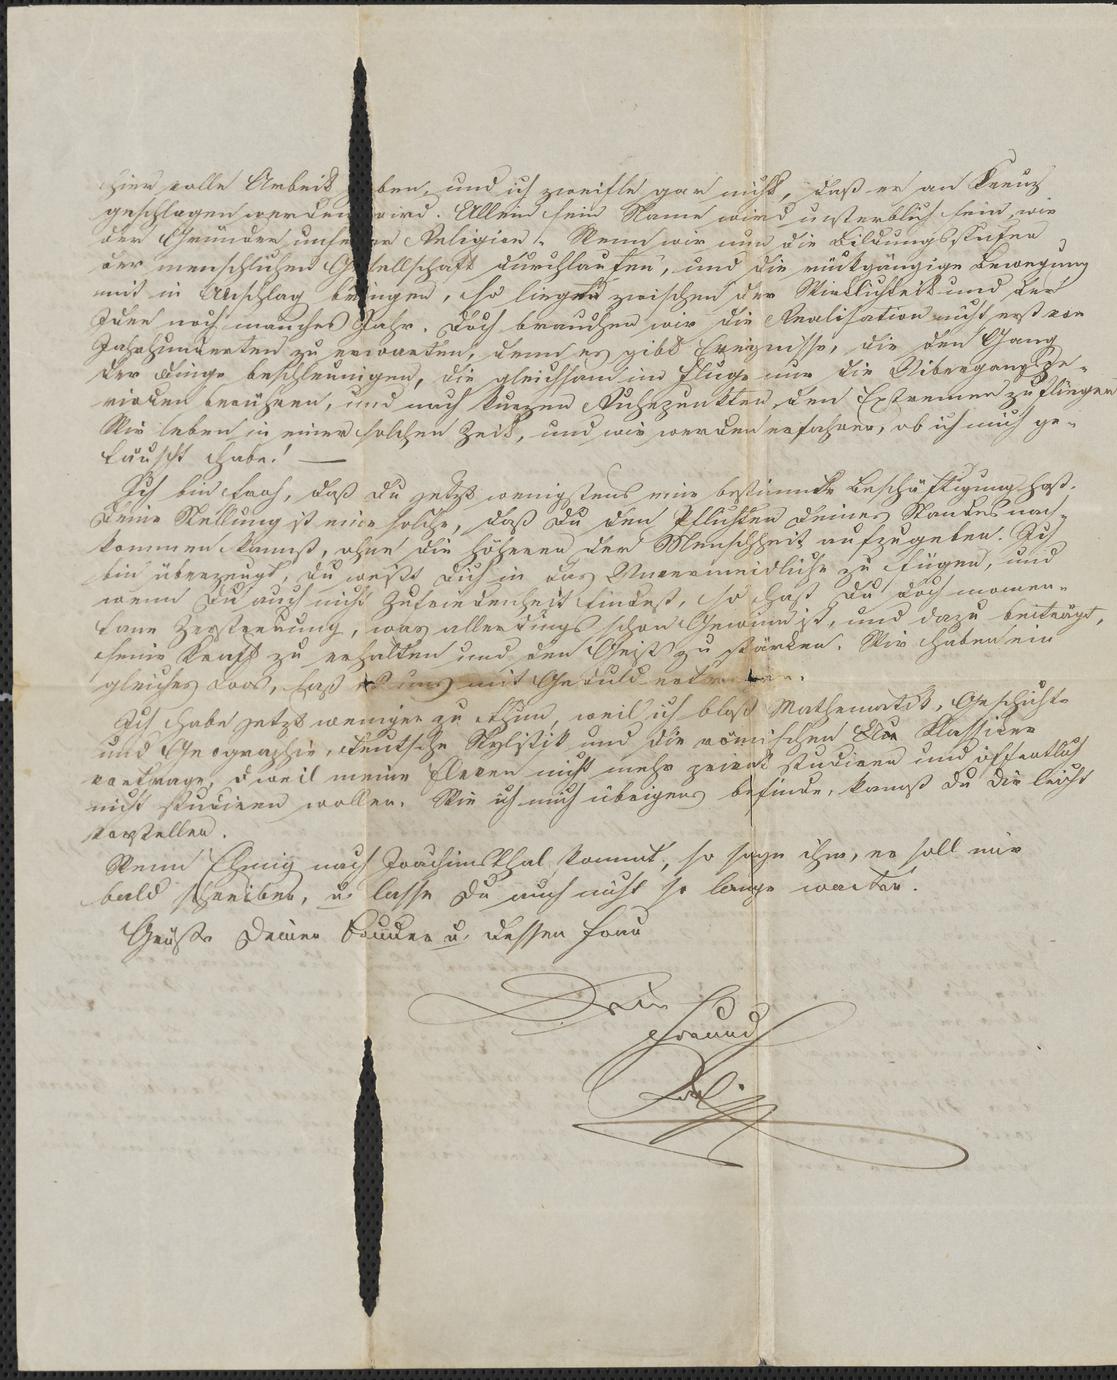 hier volle Arbeit haben, und ich zweifle gar nicht, daß er an Kreuz
geschlagen werden wird. Allein sein Name wird unsterblich sein, wie
der Gründer unserer Religion. Wenn wir nun die Bildungsstufen
der menschlichen Gesellschaft durchlaufen, und die rückgängige Bewegung
mit in Anschlag bringen, so liegen zwischen der Wirklichkeit und der
Idee noch manches Jahr. Doch brauchen wir die Realisation nicht erst von
Jahrhunderten zu erwarten, denn es gibt Ereignisse, die den Gang
der Dinge beschleunigen, die gleichsam im Fluge nur die Uibergangspe-
rioden berühren, und nach kurzen Ruhepunkten den Extremen zufliegen
Wir leben in einer solchen Zeit, und wir werden erfahren, ob ich mich ge-
täuscht habe! —
Ich bin froh, daß Du jetzt wenigstens eine bestimmte Beschäftigung hast.
Deine Stellung ist eine solche, daß Du den Pflichten Deines Standes nach-
kommen kannst, ohne die höheren der Menschheit aufzugeben. Ich
bin überzeugt, Du weißt Dich in das Unvermeidliche zu fügen, und
wenn Du auch nicht Zufriedenheit findest, so hast Du doch momen-
tane Zerstreuung, was allerdings schon Gewinn ist, und dazu beiträgt,
seine Kraft zu erhalten und den Geist zu stärken. Wir haben ein
gleiches Loos, laß es uns mit Geduld ertragen.
Ich habe jetzt weniger zu thun, weil ich bloß Mathematik, Geschichte
und Geographie, deutsche Stylistik und die römischen Klassiker
vortrage, weil meine Eleven nicht mehr privat studiren und öffentlich
nicht studiren wollen. Wie ich mich übrigens befinde, kannst Du Dir leicht
vorstellen.
Wenn nach Joachimsthal kommt, so sage ihm, er soll mir
bald schreiben, u. lasse Du auch nicht so lange warten.
Grüße Deinen Bruder u. dessen Frau
Dein
Freund